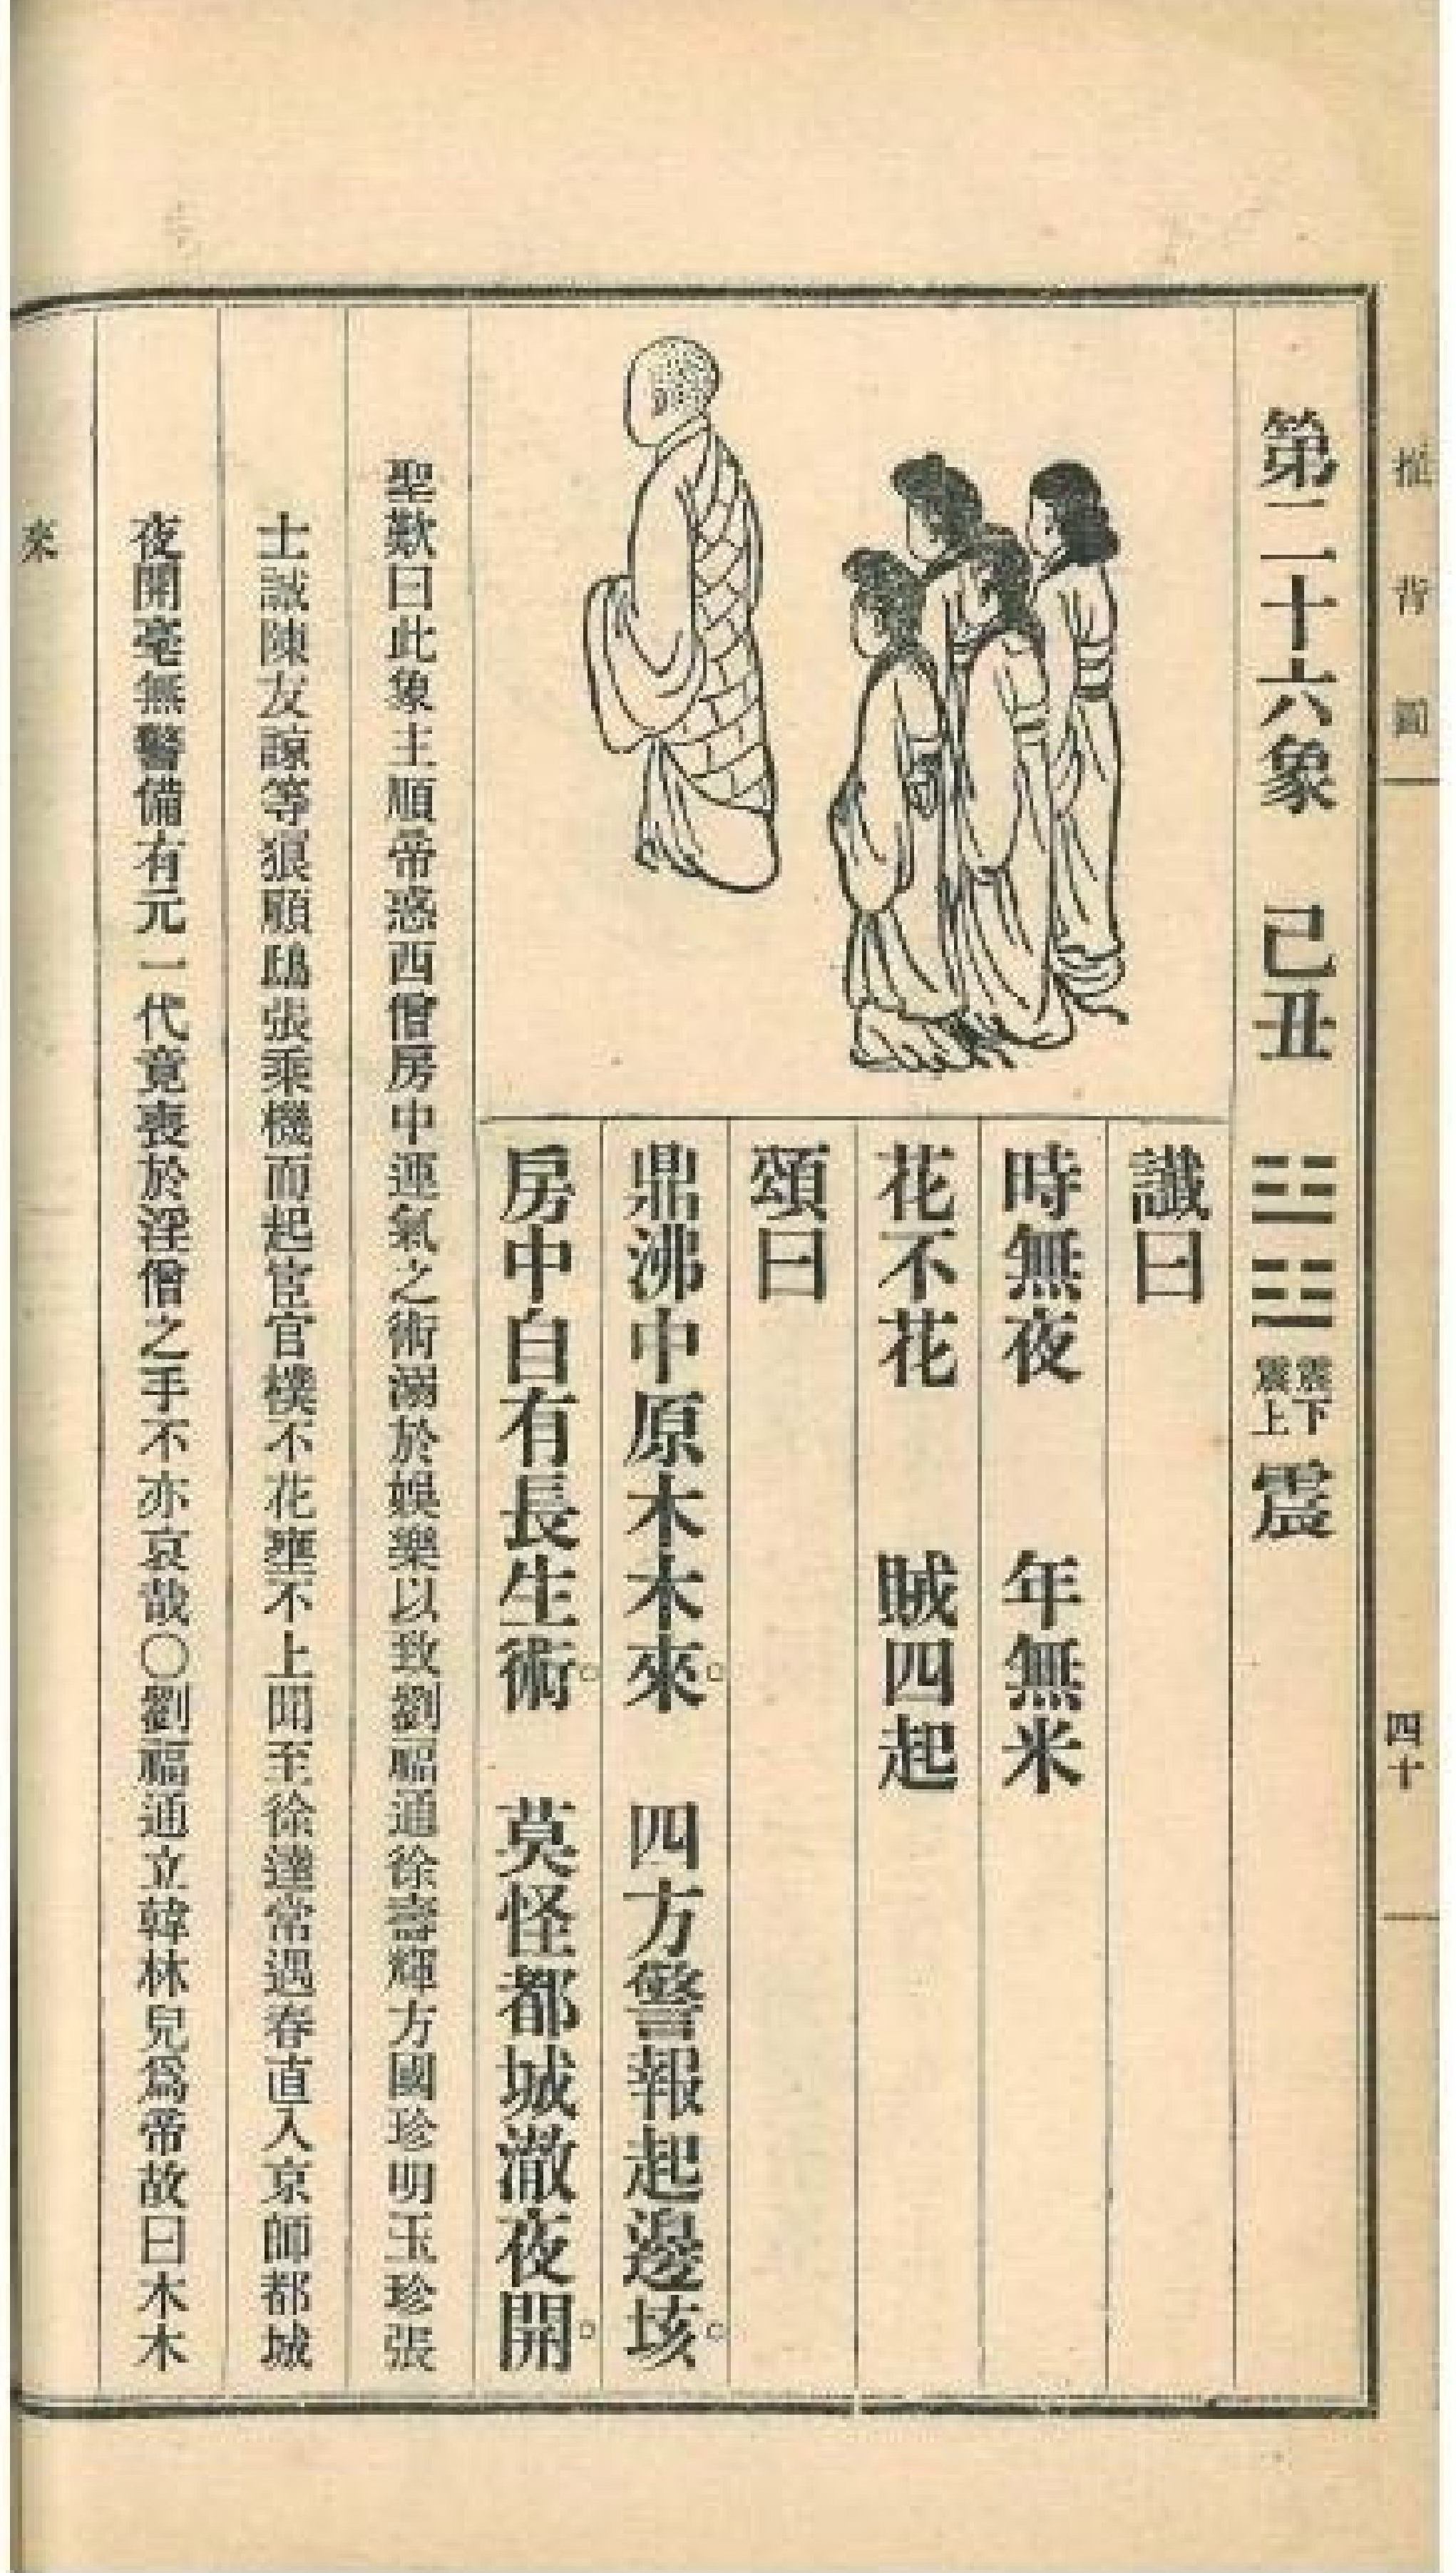 推背圖
四十
第二十六象 己丑 ䷲ 震下震上 震
讖曰
時無夜 年無米
花不花 賊四起
頌曰
鼎沸中原木木來。 四方警報起邊垓。
房中自有長生術。 莫怪都城澈夜開。
聖歎曰此象主順帝惑西僧房中運氣之術溺於娛樂以致劉福通徐壽輝方國珍明玉珍張
士誠陳友諒等狼顧鴟張乘機而起宦官樸不花壅不上聞至徐達常遇春直入京師都城
夜開毫無警備有元一代竟喪於淫僧之手不亦哀哉○劉福通立韓林兒爲帝故曰木木
來